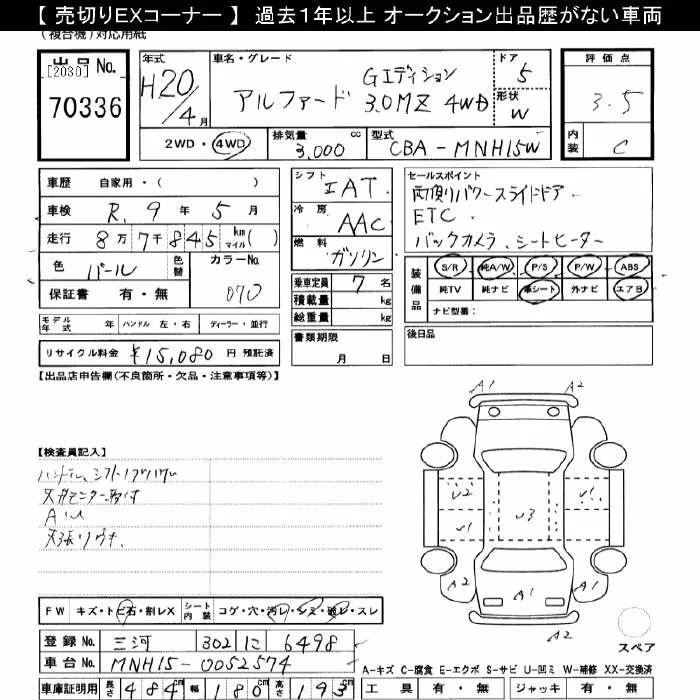 【 売切りEXコーナー 】 過去1年以上 オークション出品歴がない車両
(複合機)対応用紙
出品 No.
[2030]
70336
年式
H20/4月
車名・グレード
Gエディション
アルファード 3.0MZ 4WD
ドア
5
形状
W
評価点
3.5
内装
C
2WD・4WD
排気量 3,000 cc
型式 CBA-MNH15W
車歴 自家用・( )
車検 R. 9 年 5 月
走行 8万7千845 km マイル ( )
色 パール 色替 カラーNo. 070
保証書 有・無
シフト IAT.
冷房 AAC
燃料 ガソリン
乗車定員 7 名
積載量 kg
総重量 kg
書類期限
月 日
セールスポイント
両側パワースライドドア.
ETC.
バックカメラ、シートヒーター
装備品
S/R 純A/W P/S P/W ABS
純TV 純ナビ 革シート 外ナビ エアB
ナビ型番:
後日品
モデル年式 年 ハンドル 左・右 ディーラー・並行
リサイクル料金 ¥15,080 円 預託済
【出品店申告欄(不良箇所・欠品・注意事項等)】
【検査員記入】
A1 A2
U2 U1
U1 U3 U1
A2 A1 A2
A2
FW キズ・トビ石・割レX シート内装 コゲ・穴・汚レ・シミ・破レ・スレ
登録 No. 三河 302 に 6498
車台 No. MNH15-0052574
スペア
A-キズ C-腐食 E-エクボ S-サビ U-凹ミ W-補修 XX-交換済
車庫証明用 長さ 484cm 幅 180cm 高さ 193cm
工具 有・無 ジャッキ 有・無